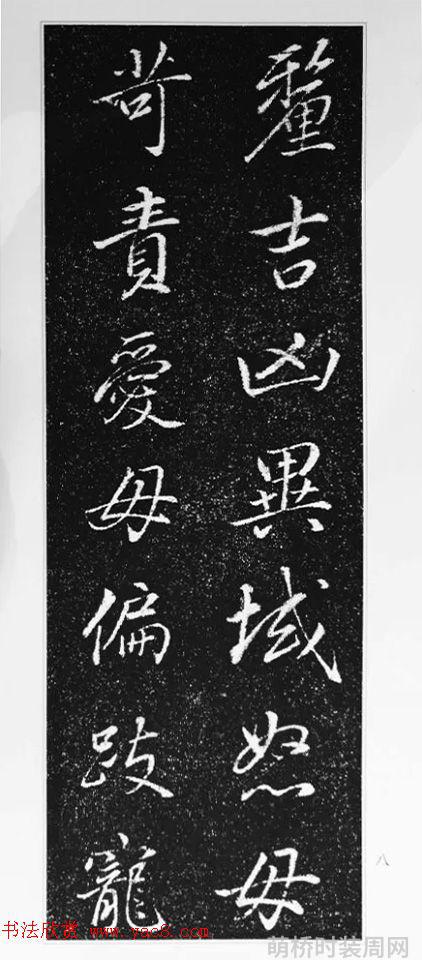 釐吉凶異域怒毋
苛責愛毋偏跂寵
八
书法欣赏 www.yac8.com
萌桥时装周网